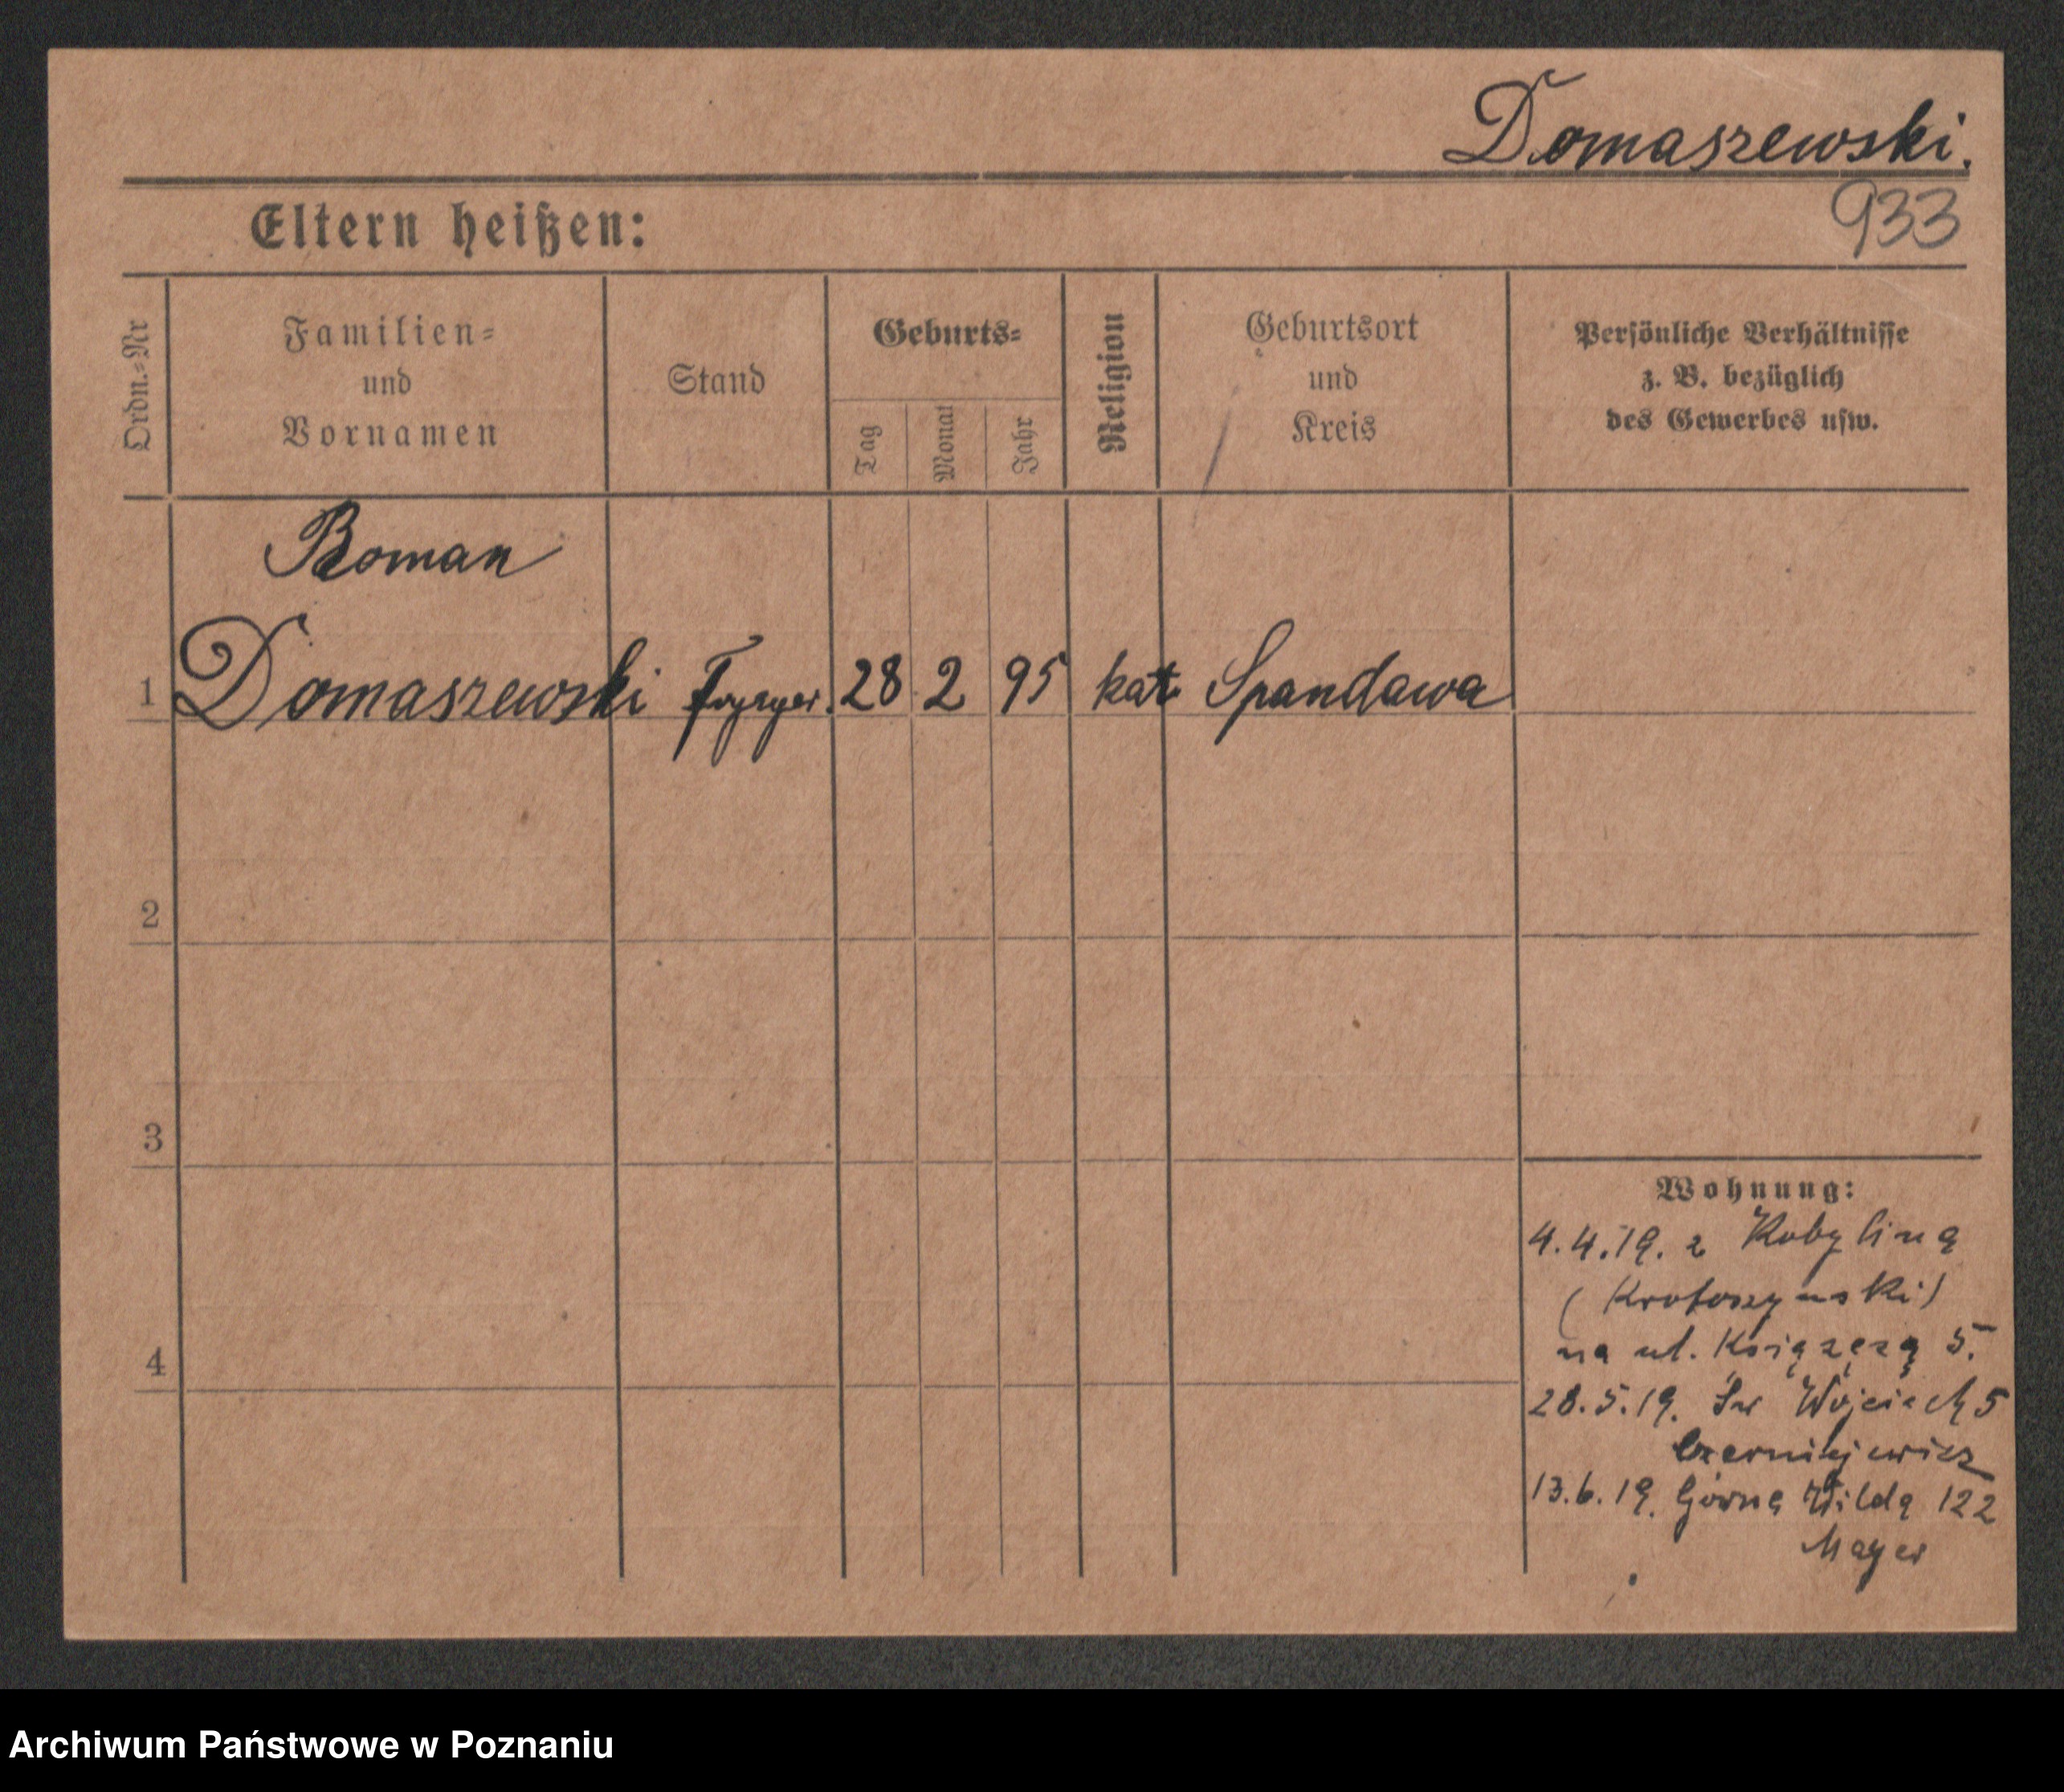 Domaszewski.
933
Eltern heißen:
Ordn.=Nr
Familien=
und
Vornamen
Stand
Geburts=
Tag
Monat
Jahr
Religion
Geburtsort
und
Kreis
Persönliche Verhältnisse
z. B. bezüglich
des Gewerbes usw.
Roman
1 Domaszewski Fryzyer. 28 2 95 kat. Spandawa
2
3
4
Wohnung:
4.4.19. z Kobylina
(Krotoszynski)
na ul. Książęzą 5.
28.5.19. Św Wojciech 5
Czerniejewicz
13.6.19. Górna Wilda 122
Mayer
Archiwum Państwowe w Poznaniu